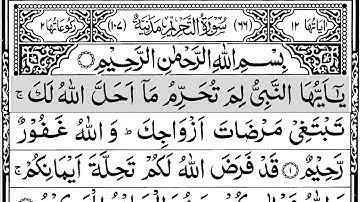 اٰيَاتُهَا ١٢ (٦٦) سُوْرَةُ التَّحْرِيْمِ مَدَنِيَّةٌ (١٠٧) رُكُوْعَاتُهَا ٢
بِسْمِ اللّٰهِ الرَّحْمٰنِ الرَّحِيْمِ
يٰۤاَيُّهَا النَّبِيُّ لِمَ تُحَرِّمُ مَاۤ اَحَلَّ اللّٰهُ لَكَ ۚ
تَبْتَغِيْ مَرْضَاتَ اَزْوَاجِكَ ؕ وَ اللّٰهُ غَفُوْرٌ
رَّحِيْمٌ ١ قَدْ فَرَضَ اللّٰهُ لَكُمْ تَحِلَّةَ اَيْمَانِكُمْ ۚ